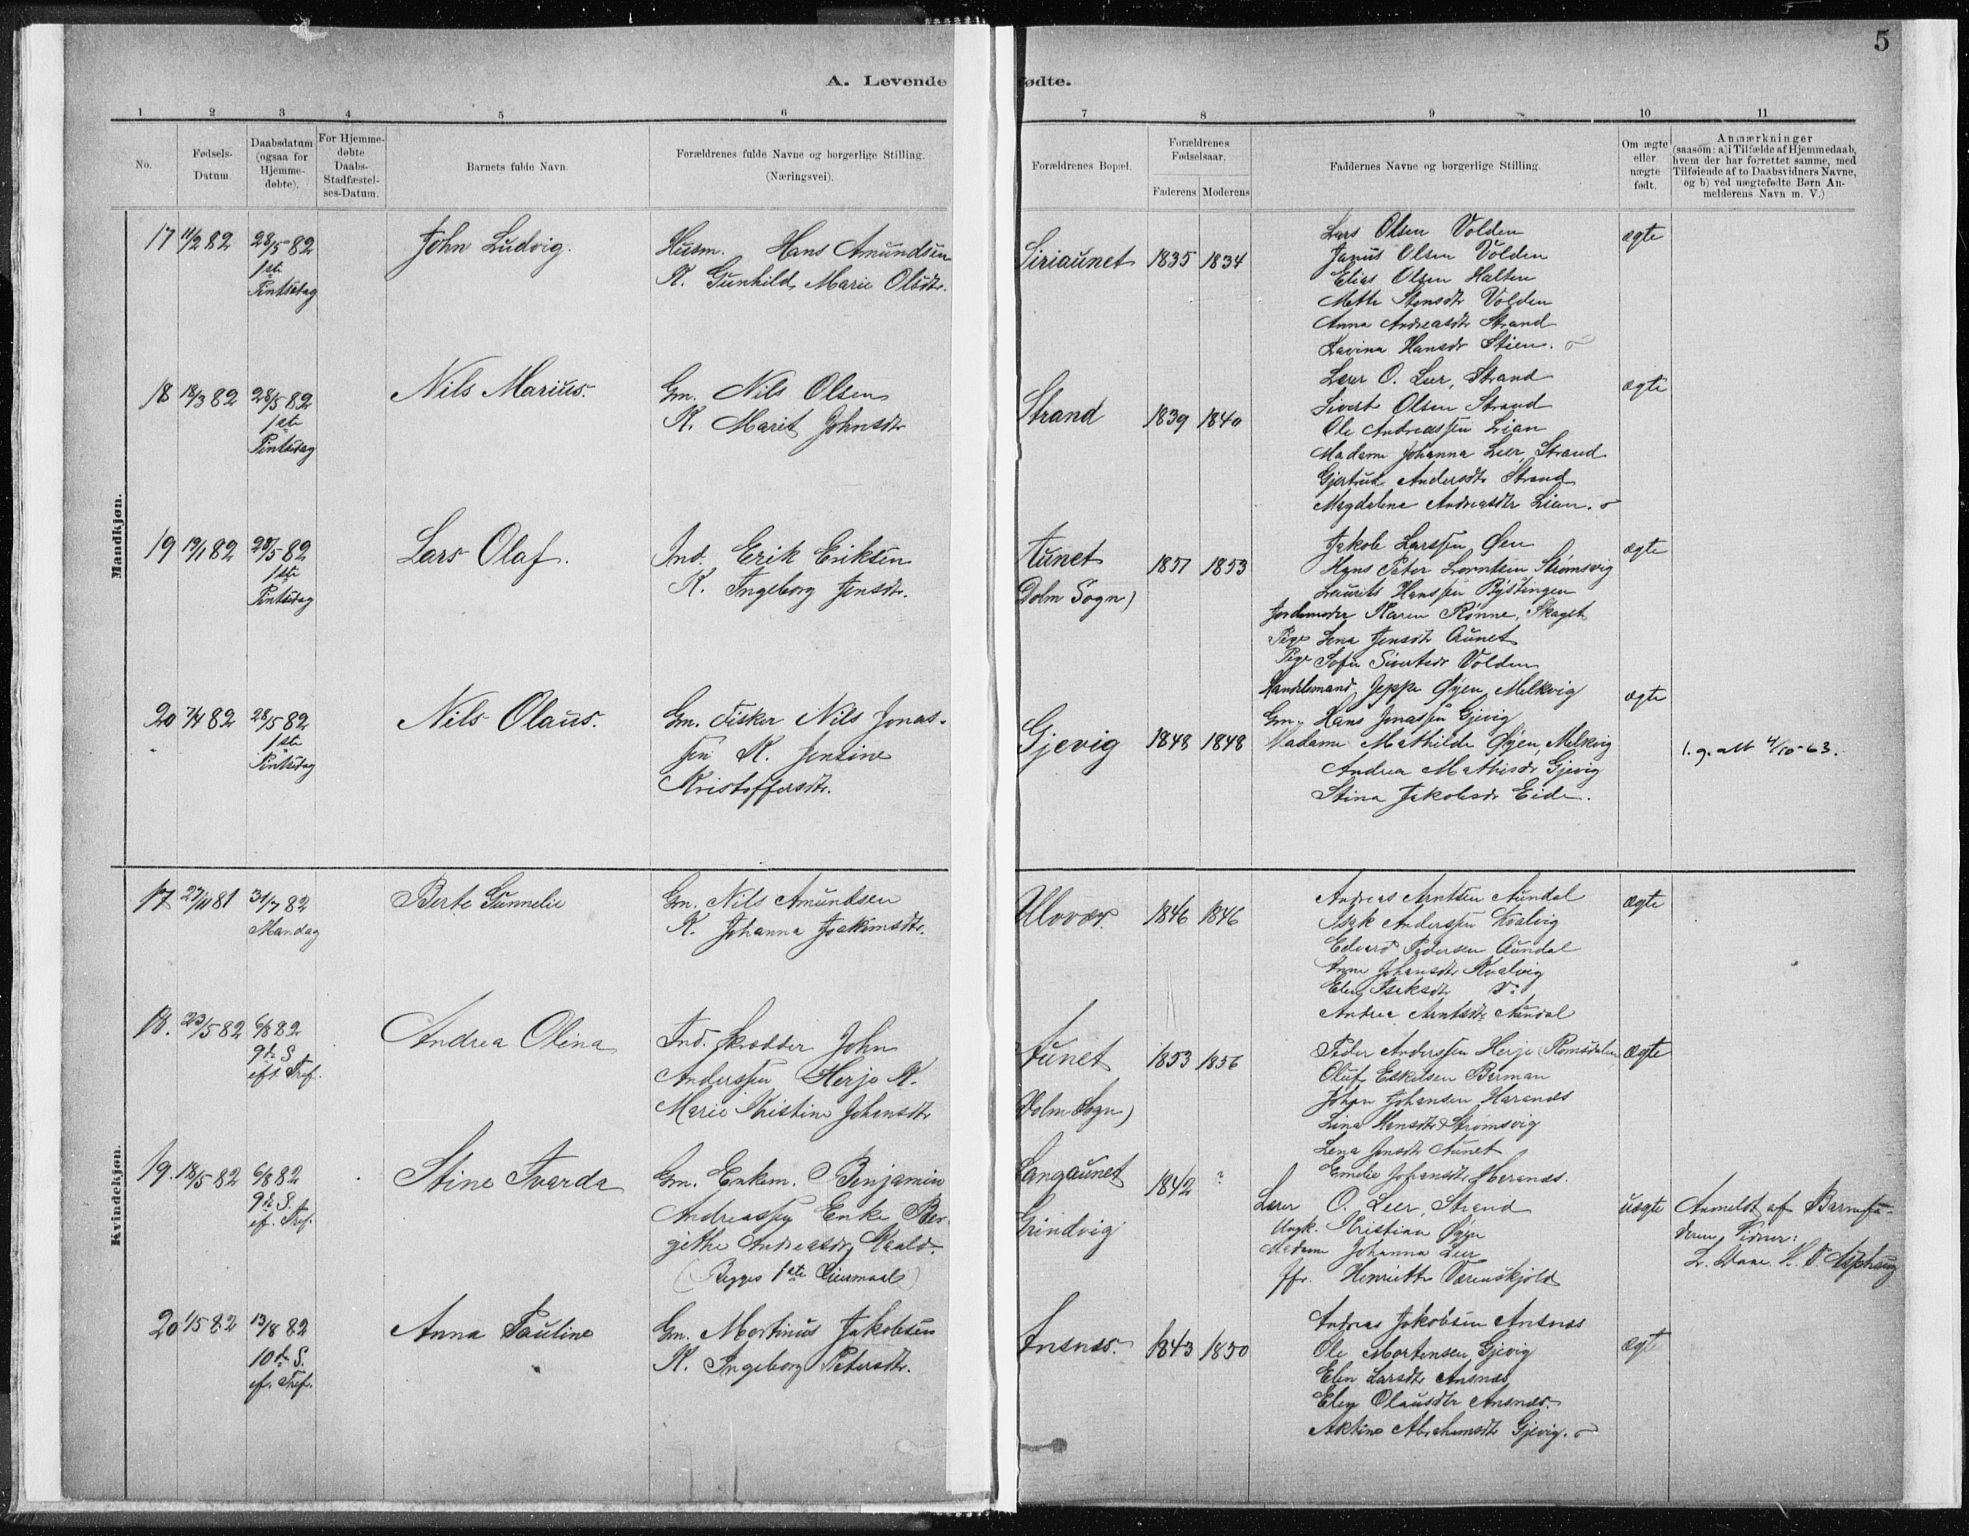 5
A. Levende fødte.
1 2 3 4 5 6 7 8 9 10 11
No.
Fødsels-
Datum.
Daabsdatum
(ogsaa for
Hjemme-
døbte).
For Hjemme-
døbte
Daabs-
Stadfæstel-
ses-Datum.
Barnets fulde Navn.
Forældrenes fulde Navne og borgerlige Stilling.
(Næringsvei).
Forældrenes Bopæl.
Forældrenes
Fødselsaar.
Faderens Moderens
Faddernes Navne og borgerlige Stilling.
Om ægte
eller
uægte
født.
Anmærkninger
(saasom: a) i Tilfælde af Hjemmedaab,
hvem der har forrettet samme, med
Tilføiende af to Daabsvidners Navne,
og b) ved uægtefødte Børn An-
melderens Navn m. V.)
Mandkjøn.
17 11/2 82
28/5 82
1ste
Pintsedag
John Ludvig.
Husm. Hans Amundsen
K. Gunhild Marie Olsdtr.
Siriaunet 1835 1834
Lars Olsen Volden
Janus Olsen Volden
Elias Olsen Halten
Mette Stensdtr Volden
Anna Andreasdtr Strand
Lavina Hansdr Stien.
ægte
18 18/3 82
28/5 82
1ste
Pintsedag
Nils Marius.
Gm. Nils Olsen
K. Marit Johnsdtr
Strand 1839 1840
Lærer O. Leer, Strand
Sivert Olsen Strand
Ole Andreassen Lian
Madam Johanna Leer, Strand
Gjertrud Andersdtr Strand
Magdalena Andreasdtr Lian.
ægte
19 19/1 82
28/5 82
1ste
Pintsedag
Lars Olaf.
Ind. Erik Eriksen
K. Ingeborg Jensdtr.
Aunet
Dolm Sogn) 1851 1853
Jakob Larssen Øen
Hans Peter Lorntsen Strømsvig
Laurits Hanssen Bystingen
Jordemoder Karen Rønne, Skaget
Pige Lena Jensdtr Aunet
Pige Sofie Sivertsdr Volden
ægte
20 7/4 82
28/5 82
1ste
Pintsedag
Nils Olaus.
Gm. Fisker Nils Jonas-
sen K. Jensine
Kristoffersdtr.
Gjevig 1848 1848
Handelsmand Jeppe Øyen, Melkvig
Gm. Hans Jonassen Gjevig
Madam Mathilde Øyen, Melkvig
Andrea Mathisdr Gjevig
Stina Jakobsdr Eide.
ægte
1. g. att 4/10-63.
Kvindekjøn.
17 27/11 81
31/7 82
Mandag
Berte Gunnelie
Gm. Nils Amundsen
K. Johanna Joakimsdtr.
Ulvvær. 1846 1846
Andreas Arntsen Aundal
Isak Anderssen Kvalvig
Edvard Pedersen Aundal
Anne Johansdtr Kvalvig
Elen Isaksdtr
Andrea Arntsdtr Aundal
ægte
18. 23/5 82
6/8 82
9de S.
eft. Tref.
Andrea Olina
Ind. Skrædder John
Anderssen Herjo K.
Marie Kristine Johansdtr
Aunet
Dolm Sogn) 1853 1856
Peder Anderssen Herje, Romsdalen
Oluf Eskelsen Berman
Johan Johansen Havnnes
Lina Hansdtr Strømsvig
Lena Jensdtr Aunet
Emelie Johansdtr Havnnes.
ægte
19. 18/5 82
6/8 82
9de S.
ef. Tref.
Stine Tvarda
Gm. Enkem. Benjamin
Andreassen Enke Ber-
githe Andreasdr, Vaald.
(Begges 1ste Leiermaal)
Langaunet
Grindvig 1842 ?
Lærer O. Leer, Strand
Ungk. Kristian Øyen
Madam Johanna Leer
Henriette Værenskjold
uægte
Anmeldt af Barnefa-
deren
20 1/5 82
13/8 82
10de S.
ef. Tref.
Anna Pauline
Gm. Martinus Jakobsen
K. Ingeborg Petersdtr.
Ansnæs. 1843 1850
Andreas Jakobsen Ansnæs
Ole Mortensen Gjevig
Elen Larsdtr Ansnæs
Elen Olausdtr Ansnæs.
Abrahamsdtr Gjevig.
ægte